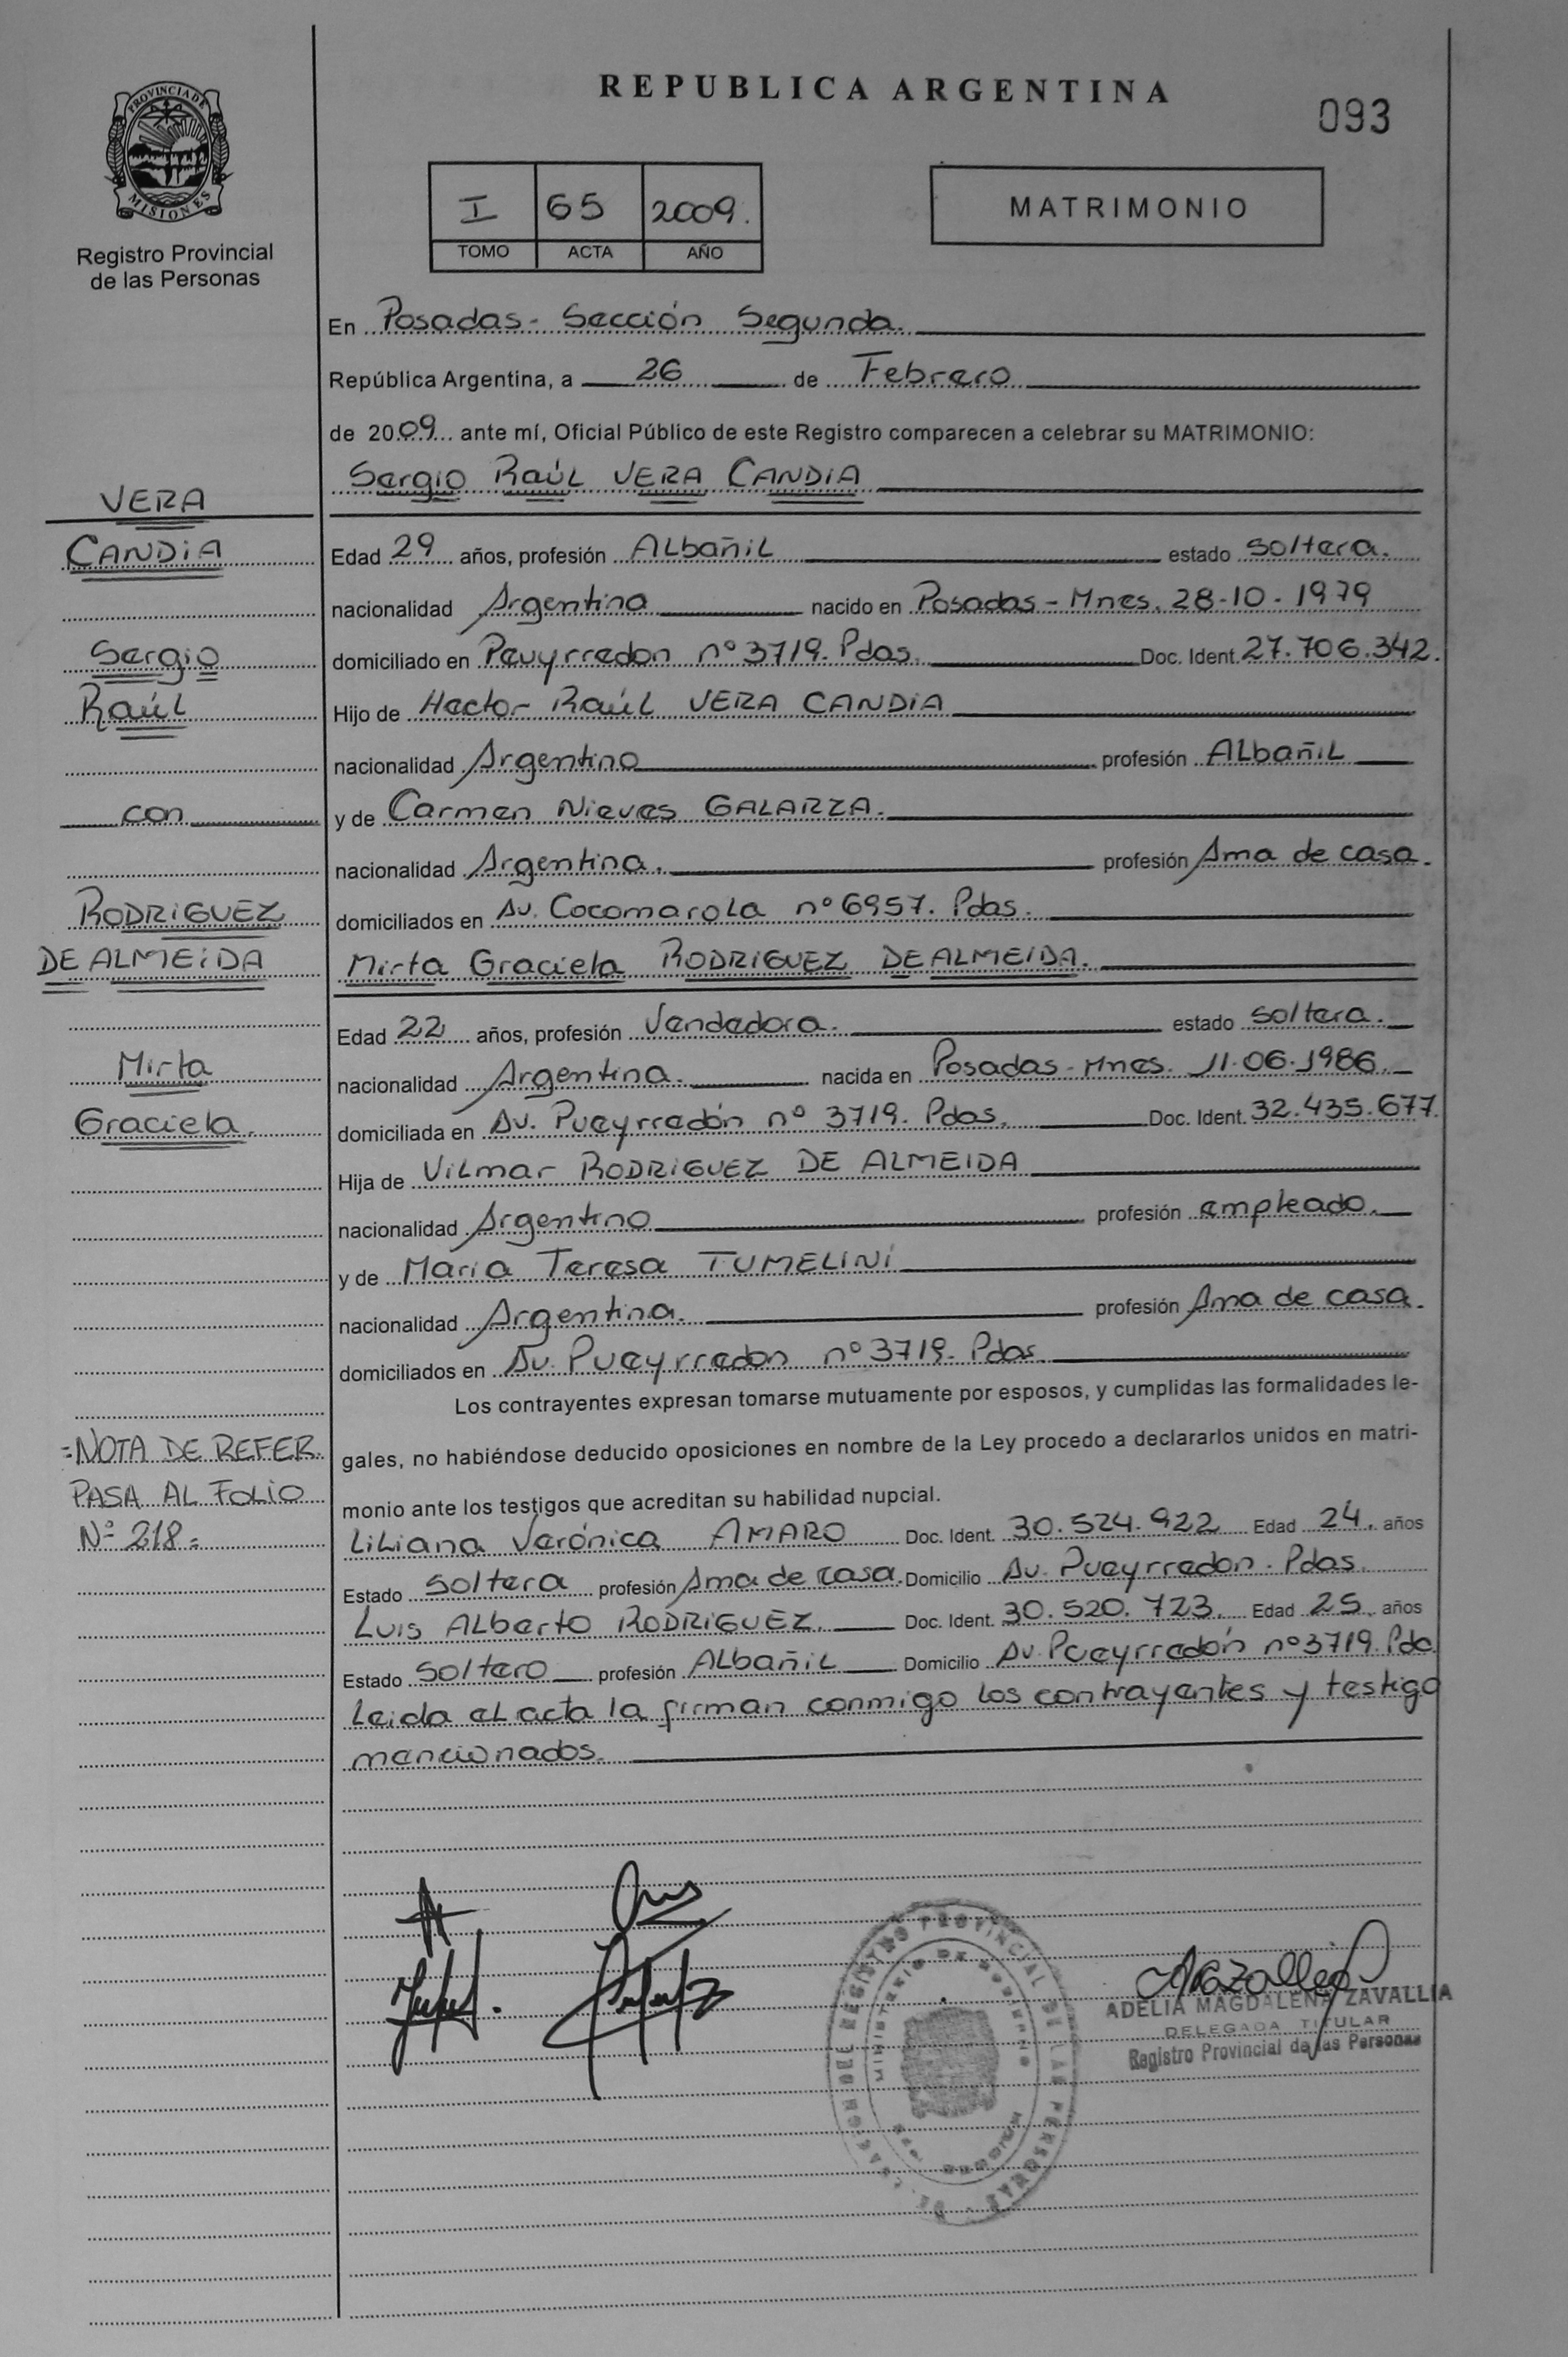 REPUBLICA ARGENTINA
093
PROVINCIA DE
MISIONES
Registro Provincial
de las Personas
I 65 2009.
TOMO ACTA AÑO
MATRIMONIO
En Posadas - Sección Segunda.
República Argentina, a 26 de Febrero
de 2009 ante mí, Oficial Público de este Registro comparecen a celebrar su MATRIMONIO:
Sergio Raúl VERA CANDIA
VERA
CANDIA
Edad 29 años, profesión Albañil estado soltera.
nacionalidad Argentina nacido en Posadas - Mnes. 28-10-1979
Sergio
domiciliado en Peuyrredon nº 3719. Pdas. Doc. Ident. 27.706.342.
Raúl
Hijo de Hector Raúl VERA CANDIA
nacionalidad Argentino profesión Albañil
con
y de Carmen Nieves GALARZA.
nacionalidad Argentina. profesión Ama de casa.
RODRIGUEZ
domiciliados en Av. Cocomarola nº 6957. Pdas.
DE ALMEIDA
Mirta Graciela RODRIGUEZ DE ALMEIDA.
Edad 22 años, profesión Vendedora. estado soltera.
Mirta
nacionalidad Argentina. nacida en Posadas - Mnes. 11-06-1986.
Graciela.
domiciliada en Av. Pueyrredón nº 3719. Pdas. Doc. Ident. 32.435.677.
Hija de Vilmar RODRIGUEZ DE ALMEIDA
nacionalidad Argentino profesión empleado.
y de Maria Teresa TUMELINI
nacionalidad Argentina. profesión Ama de casa.
domiciliados en Av. Pueyrredon nº 3719. Pdas.
Los contrayentes expresan tomarse mutuamente por esposos, y cumplidas las formalidades le-
=NOTA DE REFER.
gales, no habiéndose deducido oposiciones en nombre de la Ley procedo a declararlos unidos en matri-
PASA AL FOLIO
monio ante los testigos que acreditan su habilidad nupcial.
Nº 218=
Liliana Verónica AMARO Doc. Ident. 30.524.922 Edad 24. años
Estado soltera profesión Ama de casa. Domicilio Av. Pueyrredon. Pdas.
Luis Alberto RODRIGUEZ. Doc. Ident. 30.520.723. Edad 25. años
Estado soltero profesión Albañil Domicilio Av. Pueyrredón nº 3719. Pda
Leida el acta la firman conmigo los contrayentes y testigo
mencionados.
ADELIA MAGDALENA ZAVALLIA
DELEGADA TITULAR
Registro Provincial de las Personas
REGISTRO PROVINCIAL DE LAS PERSONAS
MINISTERIO DE GOBIERNO
MISIONES